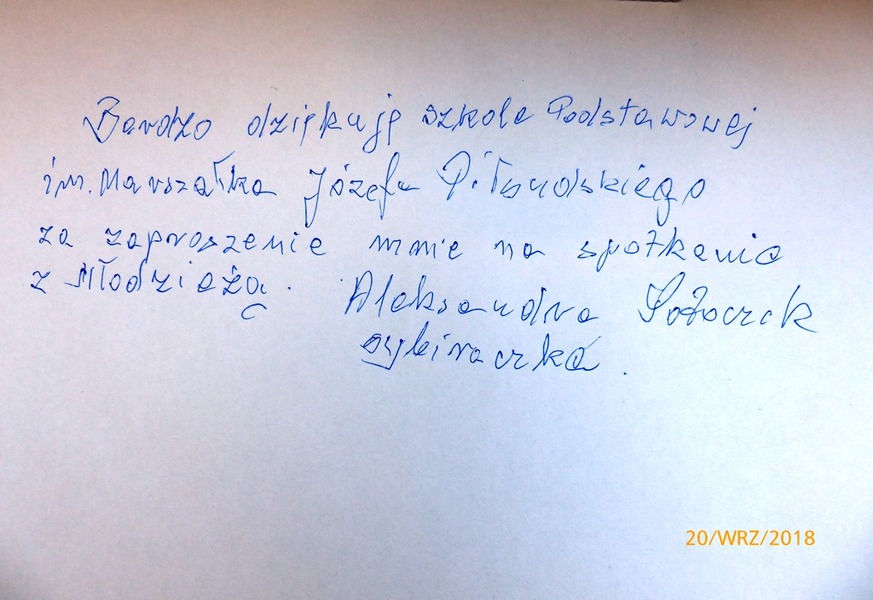 Bardzo dziękuję szkole Podstawowej
im. Marszałka Józefa Piłsudskiego
za zaproszenie mnie na spotkanie
z Młodzieżą. Aleksandra
sybiraczka.
20/WRZ/2018